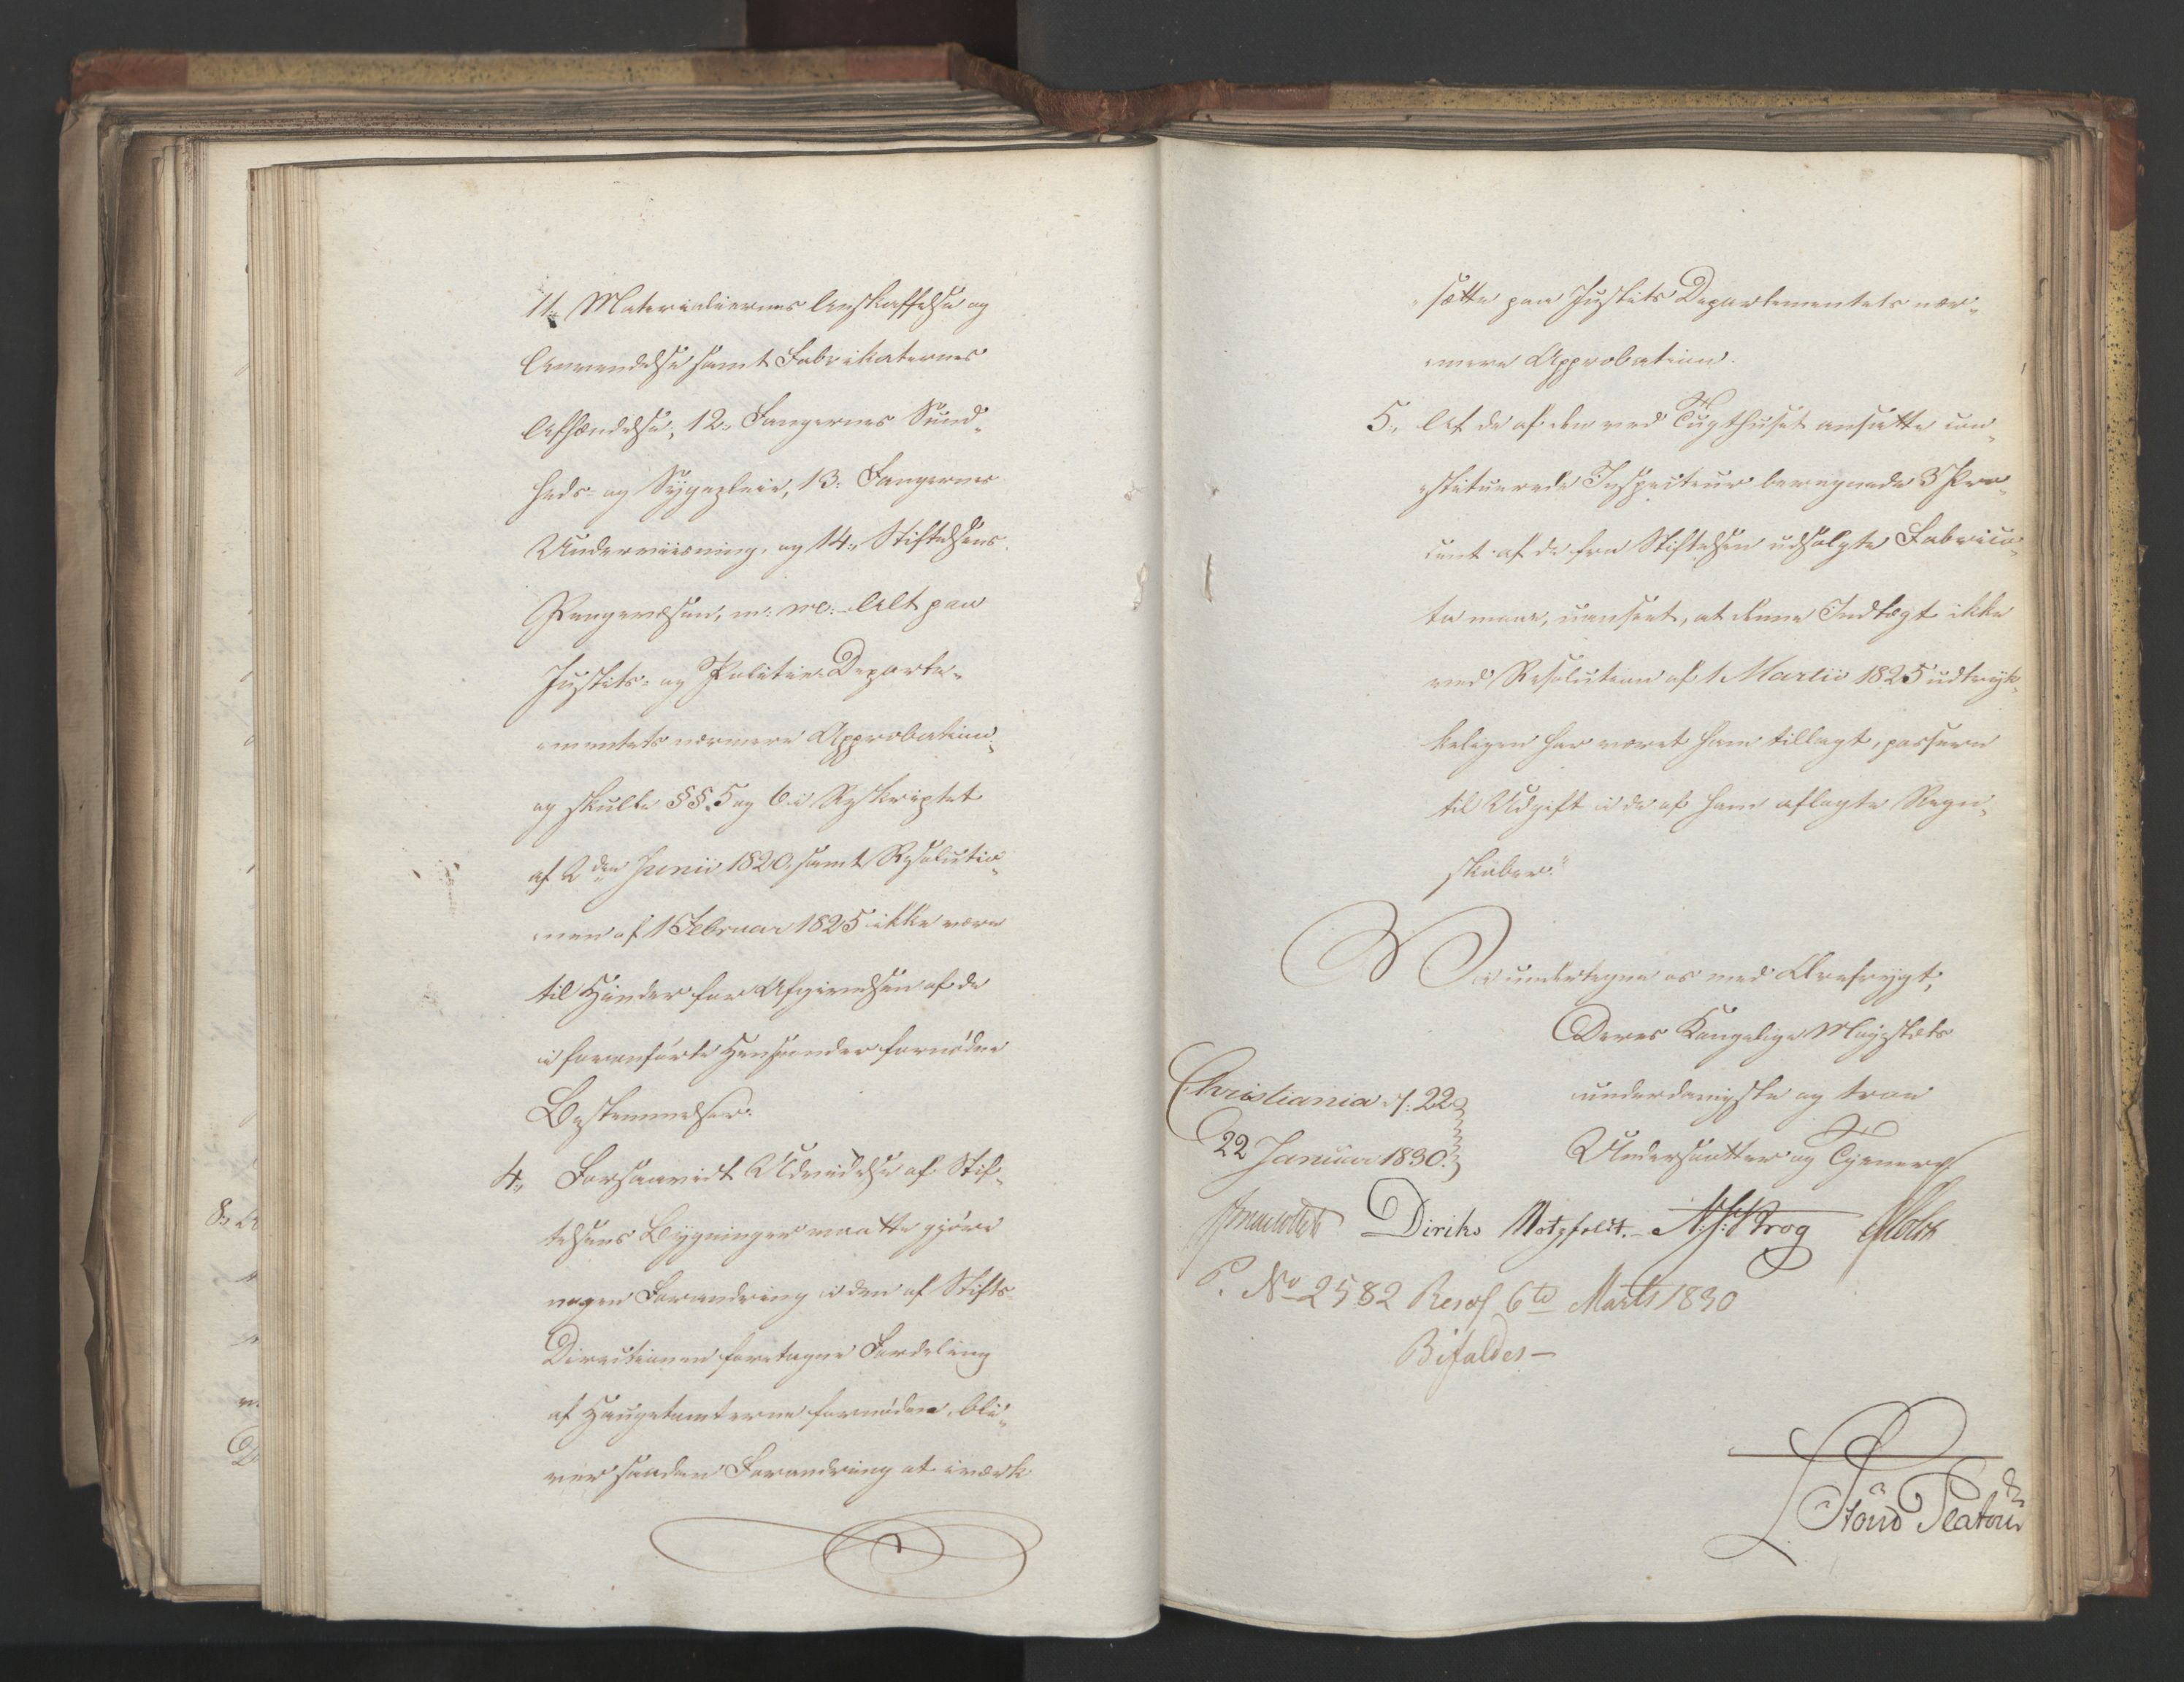 11., Materialiernes Anskaffelse og
Anvendelse samt Fabrikaternes
Afhændelse, 12., Fangernes Sund„
heds- og Sygepleie, 13., Fangernes
Underviisning, og 14., Stiftelsens
Pengevæsen, m: m: – Alt paa
Justits- og Politie-Departe„
mentets nærmere Approbation„
og skulle §§. 5 og 6 i Reskriptet
af 2den Junii 1820, samt Resolutio„
nen af 1 Februar 1825 ikke være
til Hinder for Afgivelsen af de
i foranførte Henseender fornødne
Bestemmelser.
4., Forsaavidt Udvidelse af Stif„
telsens Bygninger maatte gjøre
nogen Forandring i den af Stifts
Directionen foretagne Fordeling
af fornøden, bli„
ver saadan Forandring at iværk
sætte paa Justits Departementets nær„
mere Approbation.
5., At de af den ved Tugthuset ansatte con„
stituerede Inspecteur beregnede 3 Pro„
cent af de fra Stiftelsen udsolgte Fabrica„
ta maae, uanseet, at denne Indtægt ikke
ved Resolution af 1 Martii 1825 udtryk„
keligen har været ham tillagt, passere
til Udgift i de af ham aflagte Regn„
skaber."
Vi undertegne os med Ærefrygt,
Deres Kongelige Majestæts
underdanigste og troe
Undersaatter og Tjenere
Christiania d. 22
22 Januar 1830.
Diriks Motzfeldt. Krog Holst
P. No 2582 Resol 6te Marts 1830
Bifaldes –
Platou